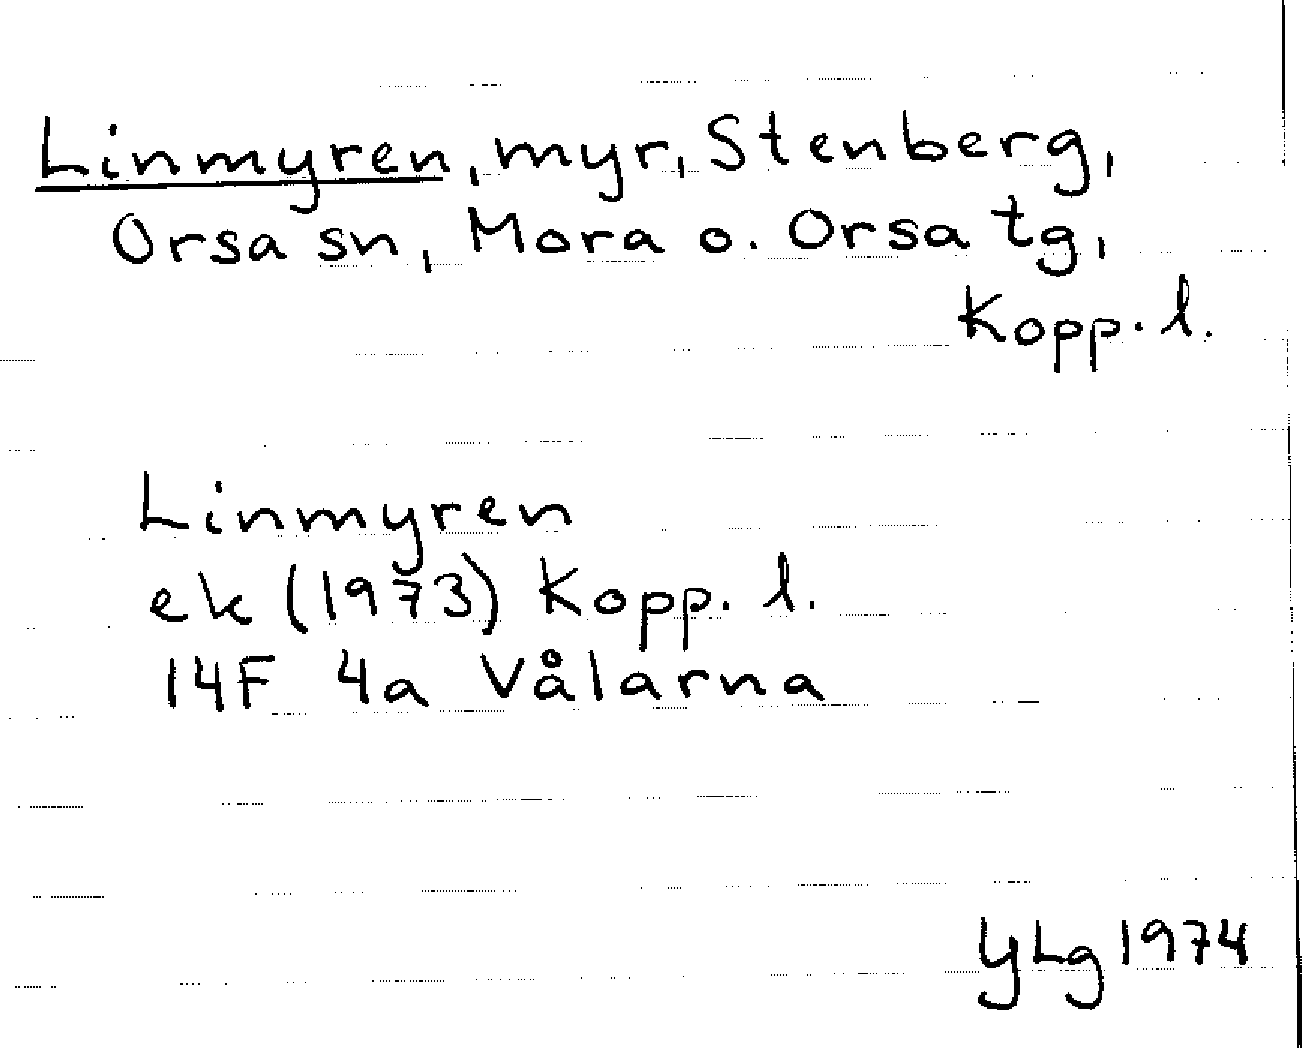 Linmyren, myr, Stenberg,
Orsa sn, Mora o. Orsa tg,
Kopp. l.
Linmyren
ek (1973) Kopp. l.
14F 4a Vålarna
YLg 1974